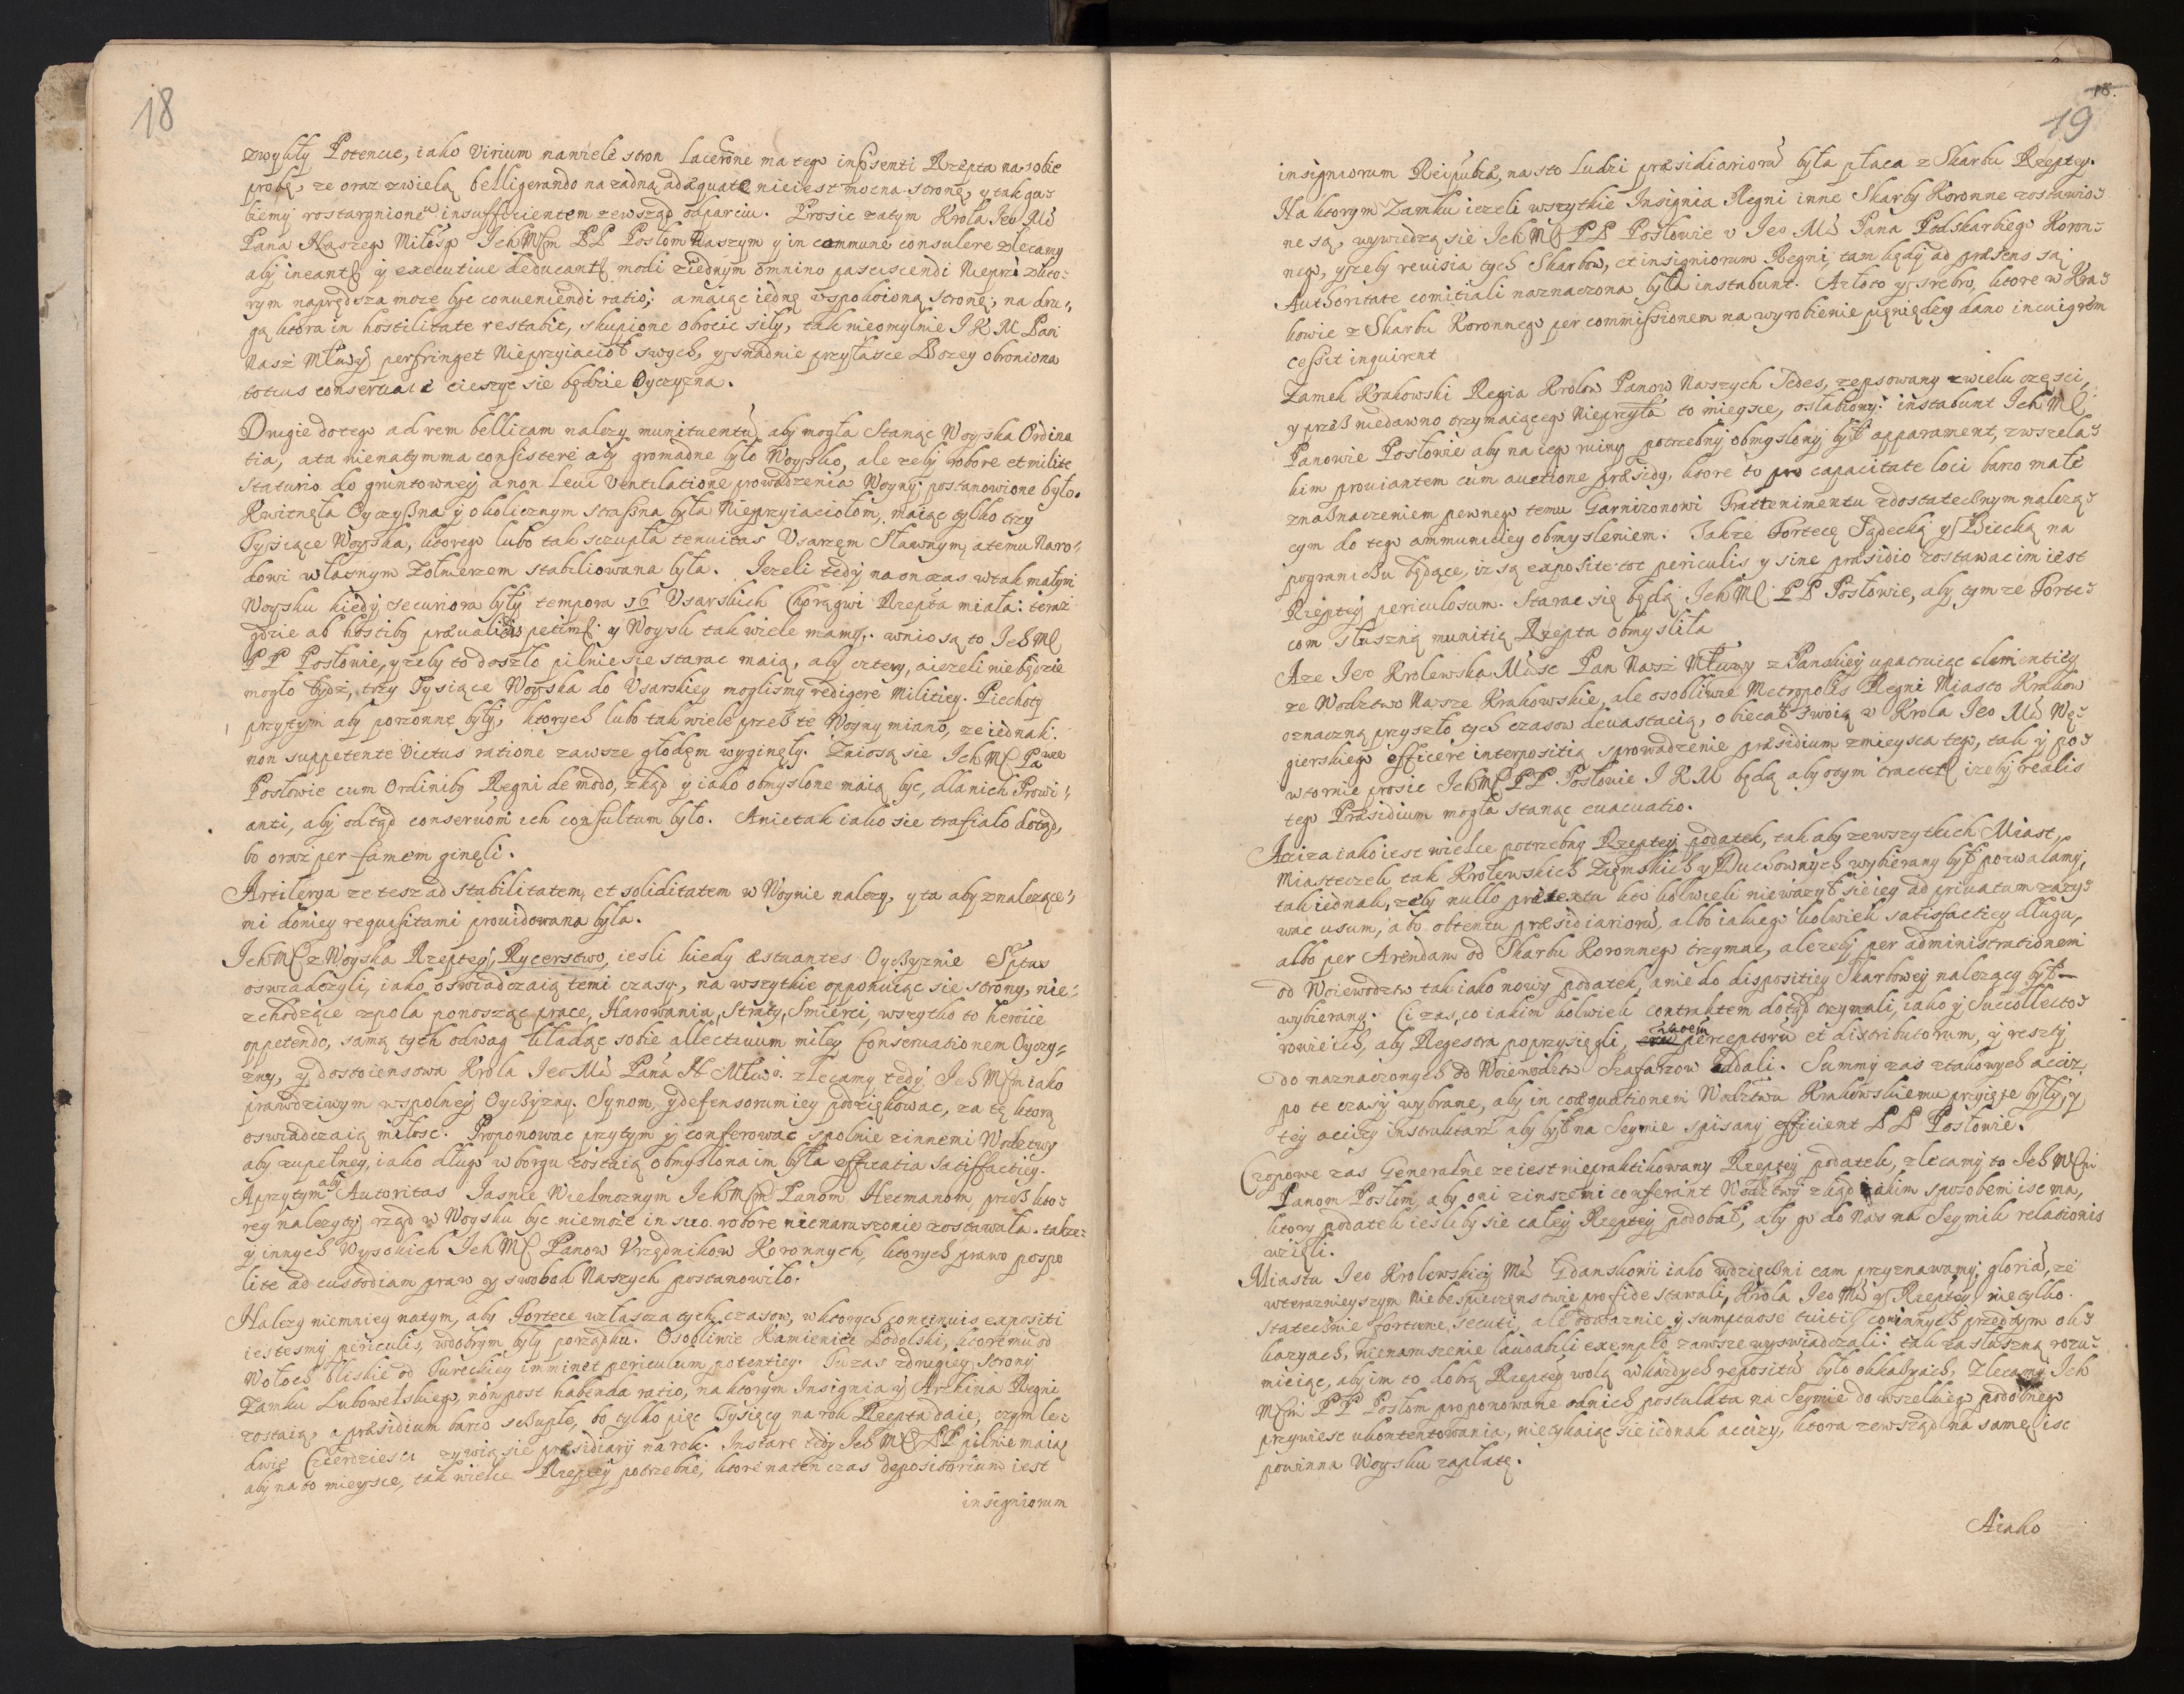 18
zwykły Potencie, iako Virium nawiele stron lacerone ma tego in psenti Rzepta na sobie
probę, ze oraz zwielą belligerando na zadną adæquate nieiest mocna stronę, y tak gu=
biemy rostargnione insufficientem zewsząd odparciu. Prosic zatym Krola Jeo Mci
Pana Naszego Miłosgo Ich MCm PP Posłom Naszym y in commune consulere zlecamy
aby ineant y executiue deducant modi ziednym omnino pasciscendi Nieprzi zkto=
rym naprędsza moze byc conueniendi ratio; amaiąc iednę vspokoioną stronę, na dru=
gą ktora in hostilitate restabit, skupione obrocic siły, tak nieomylnie J K M Pan
Nasz Młwy perfringet Nieprzyiacioł swych, y snadnie przy łasce Bozey obroniona
totius conseruacie cieszyc się będzie Oyczyzna.
Drugie do tego ad rem bellicam nalezy munituentu aby mogła Stanąc Woyska Ordina
tia, a ta nienatym ma consistere aby gromadne było Woysko, ale zeby robore et milite
staturio do gruntowney a non leui Ventilatione prowadzenia Woyny postanowione było.
Kwitnęła Oyczyzna y okolicznym straszna była Nieprzyiaciołom, maiąc tylko trzy
Tysiące Woyska, ktorego lubo tak sczupła tenuitas Vsarzem Sławnym, a temu Naro=
dowi własnym Zołnierzem stabiliowana była. Jezeli tedy na on czas w tak małym
Woysku kiedy securiora były tempora 16 Vsarskich Chorągwi Rzepta miała: teraz
gdzie ab hostiby præualidis petimr y Woysk tak wiele mamy, wniosą to Ich MC
PP Posłowie, y zeby to doszło pilnie się starac maią, aby cztery, a iezeli nie będzie
mogło bydz, trzy Tysiące Woyska do Vsarskiey moglismy redigere Militiey. Piechoty
przytym aby porzonne były, ktorych lubo tak wiele przez te Woyny miano, ze iednak
non suppetente victus ratione zawsze głodem wyginęły. Zniosą się Ich MC Pawe
Posłowie cum Ordiniby Regni de modo, zkąd y iako obmyslone maią byc, dla nich Prowi=
anti, aby odtąd conseruom ich consultum było. A nie tak iako się trafiało dotąd,
bo oraz per famem ginęli.
Artilerya ze tesz ad stabilitatem, et soliditatem w Woynie nalezy, y ta aby znalezące=
mi doniey requisitami prouidowana była.
Ich MC z Woyska Rzeptey, Rycerstwo, iesli kiedy æstuantes Oyczyznie Sptus
oswiadczyli, iako oswiadczaią temi czasy, na wszytkie opponuiąc się strony, nie=
zchodzące zpola ponosząc prace, Harowania, Straty, Smierci, wszytko to heroice
oppetendo, samą tych odwag kładąc sobie allectiuum miłey Conseruationem Oyczy=
zny, y dostoienstwa Krola Jeo Mci Pana N Młwo. zlecamy tedy Ich MCm iako
prawdziwym wspolney Oyczyzny Synom, y defensorum iey podziękowac, za tę ktorą
oswiadczaią miłosc. Proponowac przytym y conferowac spolnie zinnemi Wodztwy
aby zupełney, iako długo w borgu zostaią obmyslona im była efficatia Satisfactiey.
A przytym aby Autoritas Jasnie Wielmoznym Ich MCm Panom Hetmanom, przez kto=
rey nalezyty rząd w Woysku byc niemoze in suo robore nienaruszonie zostawała. takze=
y innych Wysokich Ich MC Panow Vrzędnikow Koronnych, ktorych prawo pospo
lite ad custodiam praw y swobod Naszych postanowiło.
Nalezy niemniey natym, aby Fortece wzłaszcza tych czasow, w ktorych continuis expositi
iestesmy periculis, wdobrym były porządku. Osobliwie Kamieniec Podolski, ktoremu od
Wołoch bliskie od Tureckiey imminet periculum potentiey. Tu zas zdrugiey strony
Zamku Lubowelskiego, non post habenda ratio, na ktorym Insignia y Archiua Regni
zostaią, a præsidium barzo sczupłe, bo tylko pięc Tysięcy na rok Rzepta daie, czym le=
dwie Czterdziesci zywią się præsidiarij na rok. Instare tedy Ich MC PP pilnie maią
aby na to mieysce, tak wielce Rzeptey potrzebne, ktore naten czas depositorium iest
insigniorum
18.
19
insigniorum Reipublæ, na sto ludzi præsidiarioru była płaca z Skarbu Rzeptey.
Na ktorym Zamku iezeli wszytkie Insignia Regni inne Skarby Koronne zostawio=
ne są, wywiedzą się Ich MC PP Posłowie v Jeo Mci Pana Podskarbiego Koron=
nego, y zeby reuisia tych Skarbow, et insigniorum Regni, tam kędy ad præsens są
Authoritate comitiali naznaczona była instabunt. A złoto y srebro, ktore w Kra=
kowie z Skarbu Koronnego per commissionem na wyrobienie pieniędzy dano in cuig rem
cessit inquirent
Zamek Krakowski Regia Krolow Panow Naszych Sedes, zepsowany zwielu części,
y przez niedawno trzymaiącego Nieprzyła to mieysce, osłabiony. instabunt Ich MC
Panowie Posłowie aby na iego ruiny potrzebny obmyslony był apparament, zwszela=
kim prouiantem cum auctione præsidy, ktore to pro capacitate loci barzo małe
znaznaczeniem pewnego temu Garnizonowi Trattenimentu zdostatecznym nalezą=
cym do tego ammunitiey obmysleniem. Takze Fortecę Sądecką y Biecką na
pograniczu będące, iz są exposite tot periculis y sine præsidio zostawac im iest
Rzeptey periculosum. Starac się będą Ich MC PP Posłowie, aby tym ze Forte=
com słuszną munitią Rzepta obmysliła
A ze Jeo Krolewska Mosc Pan Nasz Młwy z Panskiey upatruiąc clementiey
ze Wodztwo Nasze Krakowskie, ale osobliwie Metropolis Regni Miasto Krakow
oznaczną przyszło tych czasow deuastacią, obiecał swoią v Krola Jeo Mci Wę=
gierskiego efficere interpositią sprowadzenie præsidium zmieysca tego, tak y po=
wtornie prosic Ich MC PP Posłowie J K M będą aby otym tractet izeby realis
tego Præsidium mogła stanąc euacuatio.
Acciza iako iest wielce potrzebny Rzeptey podatek, tak aby zewszytkich Miast,
Miasteczek tak Krolewskich Ziemskich y Duchownych wybierany był pozwalamy,
tak iednak, zeby nullo prætextu kto kolwiek niewazył się iey ad priuatum zazy=
wac usum, abo obtentu præsidiarioru, albo iakiego kolwiek satisfactiey długu,
albo per Arendam od Skarbu Koronnego trzymac, ale zeby per administrationem
od Woiewodztw tak iako nowy podatek, a nie do dispositiey Skarbowey nalezący był
wybierany. Ci zas, co iakim kolwiek contraktem dotąd trzymali, iako y Succollecto=
rowie ich, aby Regestra poprzysięgli, perceptoru et distributorum, y reszty
do naznaczonych do Woiewodztw Szafarzow oddali. Summy zas ztakowych acciz
po te czasy wybrane, aby in coæquationem Wodztwu Krakowskiemu przyięte były, y
tey accizy instruktarz aby był na Seymie spisany efficient PP Posłowie.
Czopowe zas Generalne ze iest niepraktikowany Rzeptey podatek, zlecamy to Ich MCm
Panom Posłom, aby oni zinszemi conferant Wodztwy zkąd iakim sposobem isc ma,
ktory podatek iesliby się całey Rzeptey podobał, aby go do Nas na Seymik relationis
wzięli.
Miastu Jeo Krolewskiey Mci Gdanskowi iako wdzięczni eam przyznawamy gloriā, ze
wterazniejszym Niebespieczenstwie pro fide stawali, Krola Jeo Mci y Rzeptey nie tylko
statecznie fortune secuti, ale odwaznie y sumptuose tuiti, co winnych przedtym oka=
kazyach, nienaruszenie laudabili exemplo zawsze wyswiadczali: tak za słuszną rozu=
mieiąc, aby im to dobrą Rzeptey wolą wkazdych repositu było okkazyach, Zlecamy Ich
MCm PP Posłom proponowane odnich postulata na Seymie do wszelkiego podobnego
przywiesc vkontentowania, nietykaiąc się iednak accizy, ktora zewsząd na samę isc
powinna Woysku zapłatę.
A iako